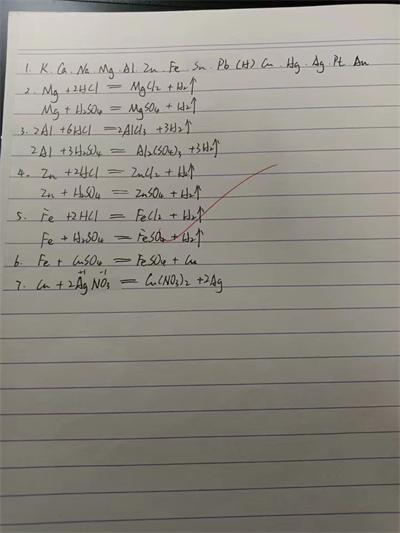 1. K Ca Na Mg Al Zn Fe Sn Pb (H) Cu Hg Ag Pt Au
2. Mg + 2HCl = MgCl₂ + H₂↑
Mg + H₂SO₄ = MgSO₄ + H₂↑
3. 2Al + 6HCl = 2AlCl₃ + 3H₂↑
2Al + 3H₂SO₄ = Al₂(SO₄)₃ + 3H₂↑
4. Zn + 2HCl = ZnCl₂ + H₂↑
Zn + H₂SO₄ = ZnSO₄ + H₂↑
5. Fe + 2HCl = FeCl₂ + H₂↑
Fe + H₂SO₄ = FeSO₄ + H₂↑
6. Fe + CuSO₄ = FeSO₄ + Cu
+1 -1
7. Cu + 2AgNO₃ = Cu(NO₃)₂ + 2Ag